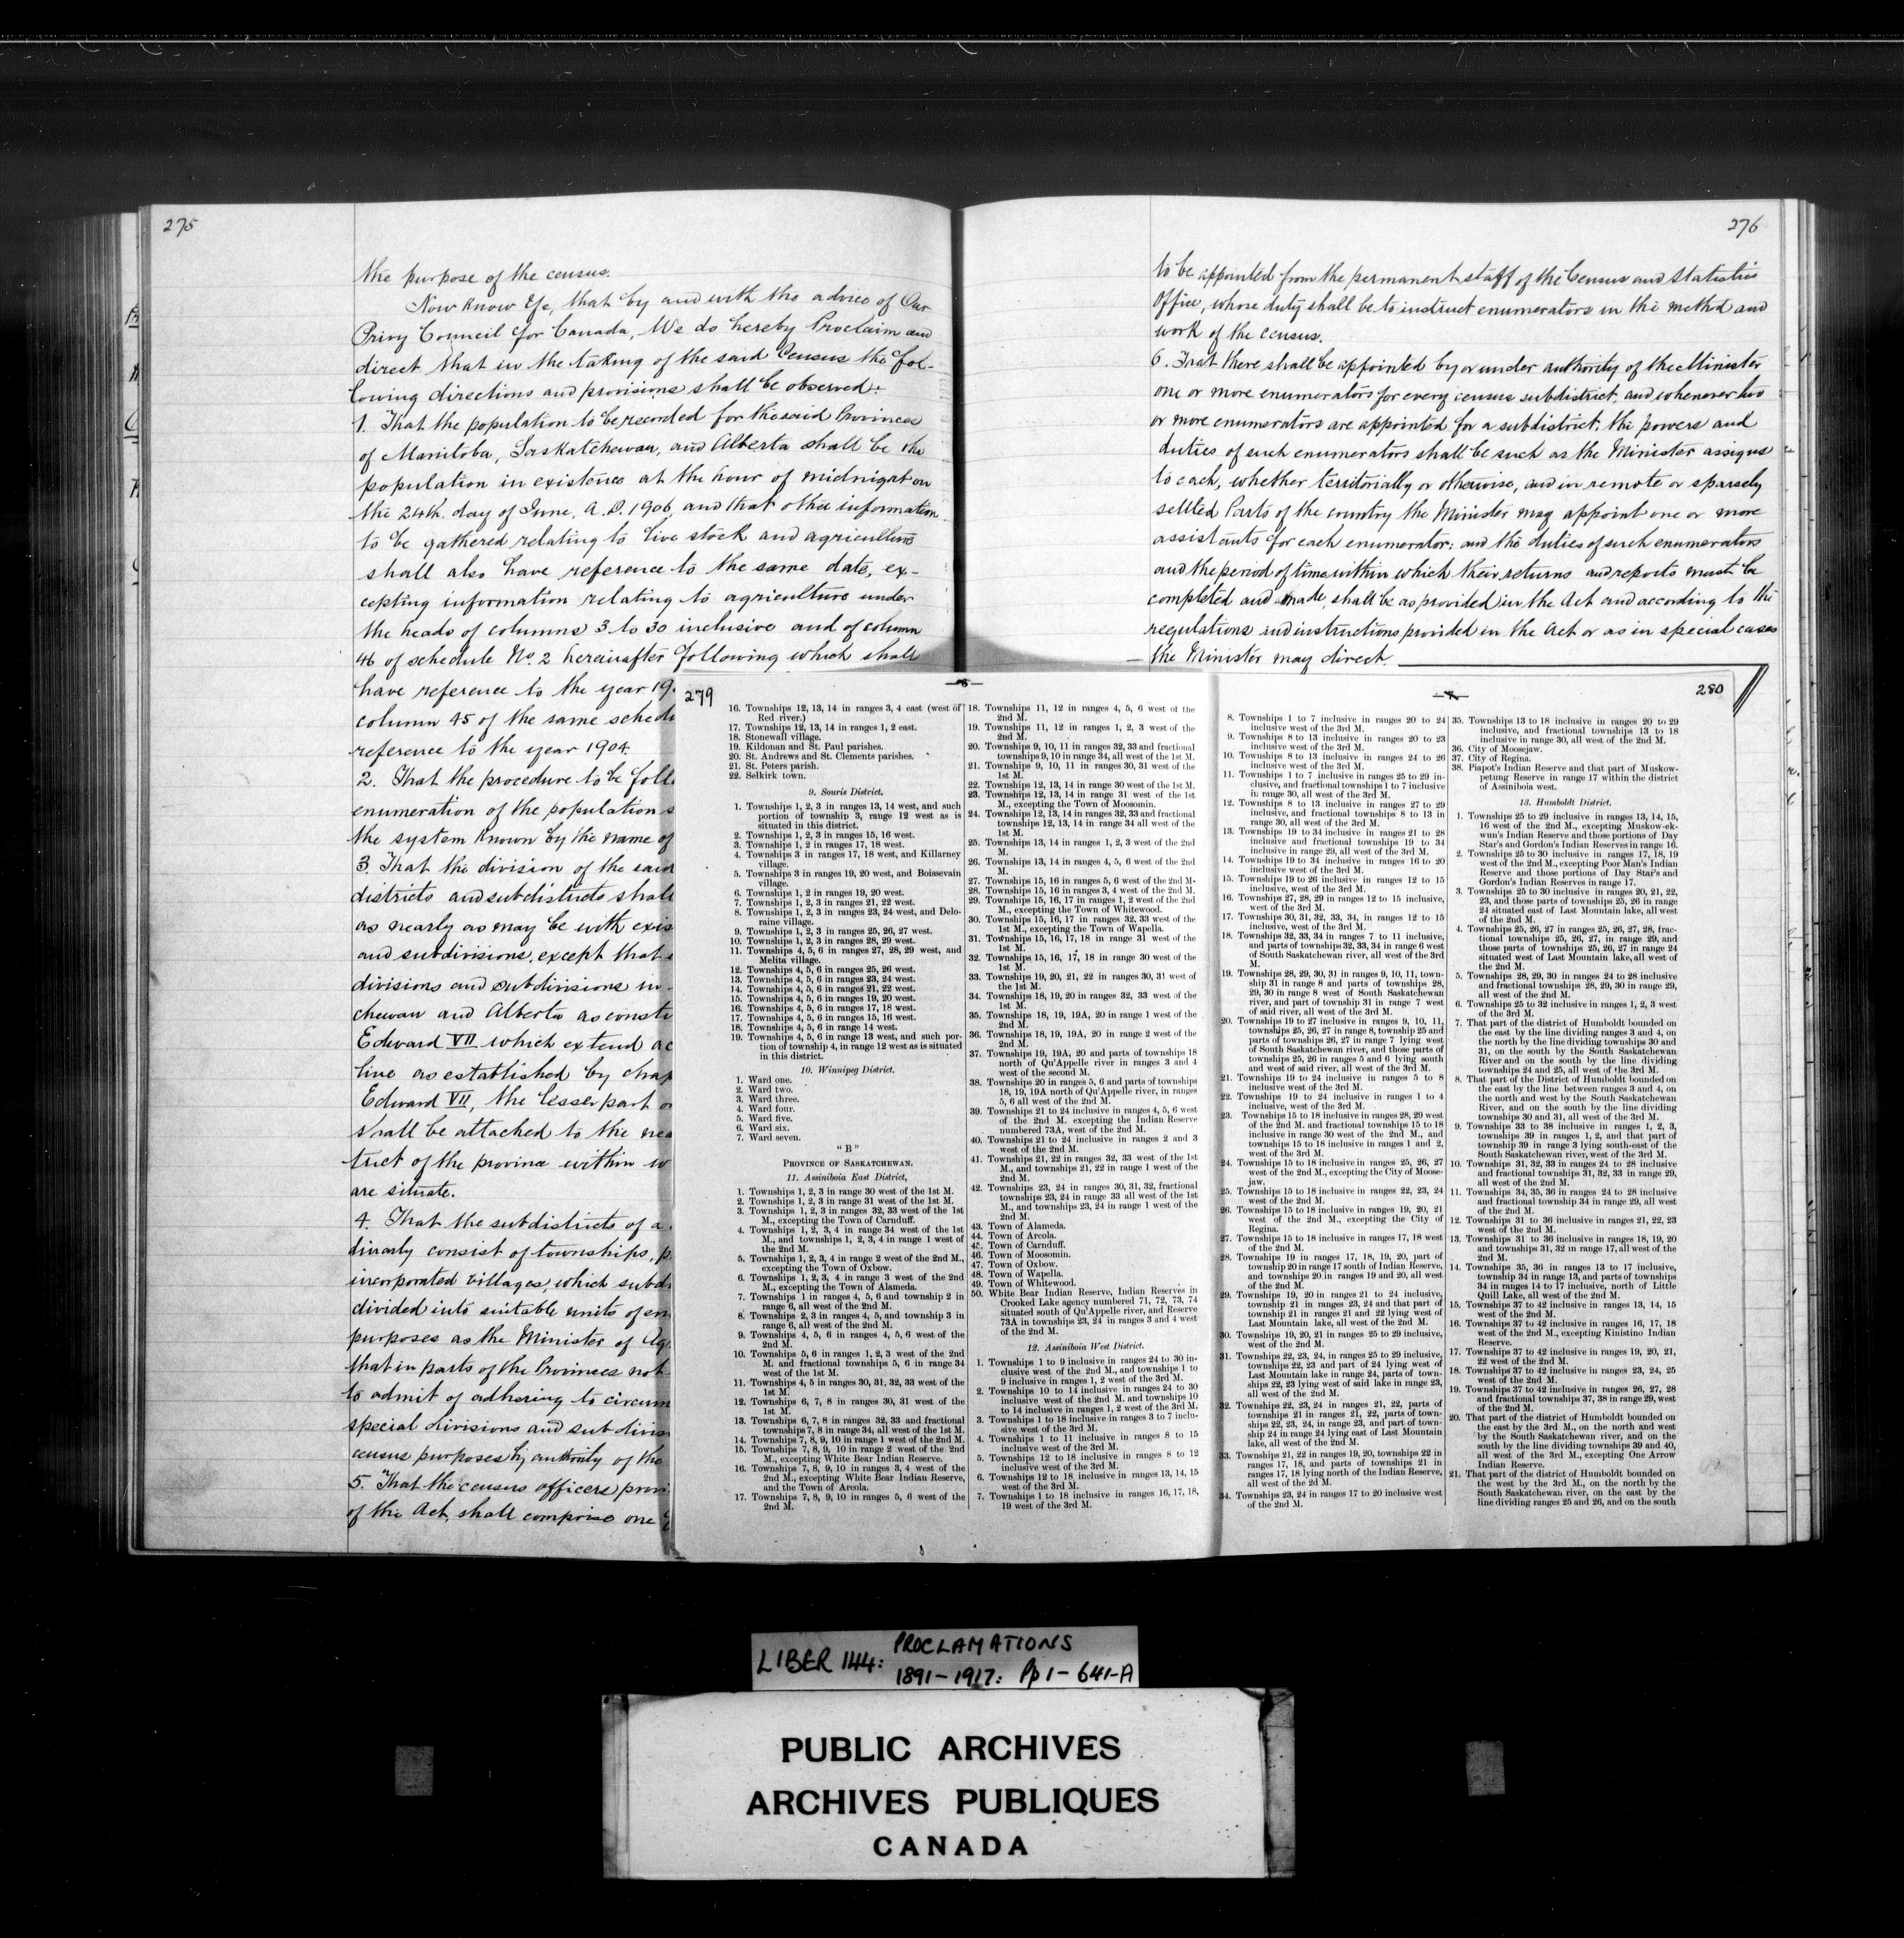 275
the purpose of the census.
Now Know Ye, that by and with the advice of Our
Privy Council for Canada, We do hereby Proclaim and
direct that in the taking of the said Census the fol-
lowing directions and provisions shall be observed:
1. That the population to be recorded for the said Provinces
of Manitoba, Saskatchewan, and Alberta shall be the
population in existence at the hour of midnight on
the 24th. day of June, A.D. 1906, and that other information
to be gathered relating to live stock and agriculture
shall also have reference to the same date, ex-
cepting information relating to agriculture under
the heads of columns 3 to 30 inclusive and of column
46 of schedule No. 2 hereinafter following which shall
have reference to the year 19
column 45 of the same sched
reference to the year 1904.
2. That the procedure to be foll
enumeration of the population
the system known by the name of
3. That the division of the said
districts and subdistricts shall
as nearly as may be with exis
and subdivisions, except that
divisions and subdivisions in
chewan and Alberta as consti
Edward VII which extend ac
line as established by chap
Edward VII, the lesser part o
shall be attached to the nea
trict of the province within w
are situate.
4. That the subdistricts of a
dinarily consist of townships, p
incorporated villages, which subd
divided into suitable units of en
purposes as the Minister of Ag
that in parts of the Provinces not
to admit of adhering to circum
special divisions and subdivis
census purposes by authority of the
5. That the census officers, prov
of the Act, shall comprise one
276
to be appointed from the permanent staff of the Census and Statistics
Office, whose duty shall be to instruct enumerators in the method and
work of the census.
6. That there shall be appointed by or under authority of the Minister
one or more enumerators for every census subdistrict, and whenever two
or more enumerators are appointed for a subdistrict, the powers and
duties of such enumerators shall be such as the Minister assigns
to each, whether territorially or otherwise, and in remote or sparsely
settled Parts of the country the Minister may appoint one or more
assistants for each enumerator: and the duties of such enumerators
and the period of time within which their returns and reports must be
completed and made, shall be as provided in the Act and according to the
regulations and instructions provided in the Act or as in special cases
the Minister may direct.
279
16. Townships 12, 13, 14 in ranges 3, 4 east (west of
Red river.)
17. Townships 12, 13, 14 in ranges 1, 2 east.
18. Stonewall village.
19. Kildonan and St. Paul parishes.
20. St. Andrews and St. Clements parishes.
21. St. Peters parish.
22. Selkirk town.
9. Souris District.
1. Townships 1, 2, 3 in ranges 13, 14 west, and such
portion of township 3, range 12 west as is
situated in this district.
2. Townships 1, 2, 3 in ranges 15, 16 west.
3. Townships 1, 2 in ranges 17, 18 west.
4. Townships 3 in ranges 17, 18 west, and Killarney
village.
5. Townships 3 in ranges 19, 20 west, and Boissevain
village.
6. Townships 1, 2 in ranges 19, 20 west.
7. Townships 1, 2, 3 in ranges 21, 22 west.
8. Townships 1, 2, 3 in ranges 23, 24 west, and Delo-
raine village.
9. Townships 1, 2, 3 in ranges 25, 26, 27 west.
10. Townships 1, 2, 3 in ranges 28, 29 west.
11. Townships 4, 5, 6 in ranges 27, 28, 29 west, and
Melita village.
12. Townships 4, 5, 6 in ranges 25, 26 west.
13. Townships 4, 5, 6 in ranges 23, 24 west.
14. Townships 4, 5, 6 in ranges 21, 22 west.
15. Townships 4, 5, 6 in ranges 19, 20 west.
16. Townships 4, 5, 6 in ranges 17, 18 west.
17. Townships 4, 5, 6 in ranges 15, 16 west.
18. Townships 4, 5, 6 in range 14 west.
19. Townships 4, 5, 6 in range 13 west, and such por-
tion of township 4, in range 12 west as is situated
in this district.
10. Winnipeg District.
1. Ward one.
2. Ward two.
3. Ward three.
4. Ward four.
5. Ward five.
6. Ward six.
7. Ward seven.
"B"
PROVINCE OF SASKATCHEWAN.
11. Assiniboia East District,
1. Townships 1, 2, 3 in range 30 west of the 1st M.
2. Townships 1, 2, 3 in range 31 west of the 1st M.
3. Townships 1, 2, 3 in ranges 32, 33 west of the 1st
M., excepting the Town of Carnduff.
4. Townships 1, 2, 3, 4 in range 34 west of the 1st
M., and townships 1, 2, 3, 4 in range 1 west of
the 2nd M.
5. Townships 1, 2, 3, 4 in range 2 west of the 2nd M.,
excepting the Town of Oxbow.
6. Townships 1, 2, 3, 4 in range 3 west of the 2nd
M., excepting the Town of Alameda.
7. Townships 1 in ranges 4, 5, 6 and township 2 in
range 6, all west of the 2nd M.
8. Townships 2, 3 in ranges 4, 5, and township 3 in
range 6, all west of the 2nd M.
9. Townships 4, 5, 6 in ranges 4, 5, 6 west of the
2nd M.
10. Townships 5, 6 in ranges 1, 2, 3 west of the 2nd
M. and fractional townships 5, 6 in range 34
west of the 1st M.
11. Townships 4, 5 in ranges 30, 31, 32, 33 west of the
1st M.
12. Townships 6, 7, 8 in ranges 30, 31 west of the
1st M.
13. Townships 6, 7, 8 in ranges 32, 33 and fractional
townships 7, 8 in range 34, all west of the 1st M.
14. Townships 7, 8, 9, 10 in range 1 west of the 2nd M.
15. Townships 7, 8, 9, 10 in range 2 west of the 2nd
M., excepting White Bear Indian Reserve.
16. Townships 7, 8, 9, 10 in ranges 3, 4 west of the
2nd M., excepting White Bear Indian Reserve,
and the Town of Arcola.
17. Townships 7, 8, 9, 10 in ranges 5, 6 west of the
2nd M.
18. Townships 11, 12 in ranges 4, 5, 6 west of the
2nd M.
19. Townships 11, 12 in ranges 1, 2, 3 west of the
2nd M.
20. Townships 9, 10, 11 in ranges 32, 33 and fractional
townships 9, 10 in range 34, all west of the 1st M.
21. Townships 9, 10, 11 in ranges 30, 31 west of the
1st M.
22. Townships 12, 13, 14 in range 30 west of the 1st M.
23. Townships 12, 13, 14 in range 31 west of the 1st
M., excepting the Town of Moosomin.
24. Townships 12, 13, 14 in ranges 32, 33 and fractional
townships 12, 13, 14 in range 34 all west of the
1st M.
25. Townships 13, 14 in ranges 1, 2, 3 west of the 2nd
M.
26. Townships 13, 14 in ranges 4, 5, 6 west of the 2nd
M.
27. Townships 15, 16 in ranges 5, 6 west of the 2nd M.
28. Townships 15, 16 in ranges 3, 4 west of the 2nd M.
29. Townships 15, 16, 17 in ranges 1, 2 west of the 2nd
M., excepting the Town of Whitewood.
30. Townships 15, 16, 17 in ranges 32, 33 west of the
1st M., excepting the Town of Wapella.
31. Townships 15, 16, 17, 18 in range 31 west of the
1st M.
32. Townships 15, 16, 17, 18 in range 30 west of the
1st M.
33. Townships 19, 20, 21, 22 in ranges 30, 31 west of
the 1st M.
34. Townships 18, 19, 20 in ranges 32, 33 west of the
1st M.
35. Townships 18, 19, 19A, 20 in range 1 west of the
2nd M.
36. Townships 18, 19, 19A, 20 in range 2 west of the
2nd M.
37. Townships 19, 19A, 20 and parts of townships 18
north of Qu'Appelle river in ranges 3 and 4
west of the second M.
38. Townships 20 in ranges 5, 6 and parts of townships
18, 19, 19A north of Qu'Appelle river, in ranges
5, 6 all west of the 2nd M.
39. Townships 21 to 24 inclusive in ranges 4, 5, 6 west
of the 2nd M. excepting the Indian Reserve
numbered 73A, west of the 2nd M.
40. Townships 21 to 24 inclusive in ranges 2 and 3
west of the 2nd M.
41. Townships 21, 22 in ranges 32, 33 west of the 1st
M., and townships 21, 22 in range 1 west of the
2nd M.
42. Townships 23, 24 in ranges 30, 31, 32, fractional
townships 23, 24 in range 33 all west of the 1st
M., and townships 23, 24 in range 1 west of the
2nd M.
43. Town of Alameda.
44. Town of Arcola.
45. Town of Carnduff.
46. Town of Moosomin.
47. Town of Oxbow.
48. Town of Wapella.
49. Town of Whitewood.
50. White Bear Indian Reserve, Indian Reserves in
Crooked Lake agency numbered 71, 72, 73, 74
situated south of Qu'Appelle river, and Reserve
73A in townships 23, 24 in ranges 3 and 4 west
of the 2nd M.
12. Assiniboia West District.
1. Townships 1 to 9 inclusive in ranges 24 to 30 in-
clusive west of the 2nd M., and townships 1 to
9 inclusive in ranges 1, 2 west of the 3rd M.
2. Townships 10 to 14 inclusive in ranges 24 to 30
inclusive west of the 2nd M. and townships 10
to 14 inclusive in ranges 1, 2 west of the 3rd M.
3. Townships 1 to 18 inclusive in ranges 3 to 7 inclu-
sive west of the 3rd M.
4. Townships 1 to 11 inclusive in ranges 8 to 15
inclusive west of the 3rd M.
5. Townships 12 to 18 inclusive in ranges 8 to 12
inclusive west of the 3rd M.
6. Townships 12 to 18 inclusive in ranges 13, 14, 15
west of the 3rd M.
7. Townships 1 to 18 inclusive in ranges 16, 17, 18,
19 west of the 3rd M.
280
8. Townships 1 to 7 inclusive in ranges 20 to 24
inclusive west of the 3rd M.
9. Townships 8 to 13 inclusive in ranges 20 to 23
inclusive west of the 3rd M.
10. Townships 8 to 13 inclusive in ranges 24 to 26
inclusive west of the 3rd M.
11. Townships 1 to 7 inclusive in ranges 25 to 29 in-
clusive, and fractional townships 1 to 7 inclusive
in range 30, all west of the 3rd M.
12. Townships 8 to 13 inclusive in ranges 27 to 29
inclusive, and fractional townships 8 to 13 in
range 30, all west of the 3rd M.
13. Townships 19 to 34 inclusive in ranges 21 to 28
inclusive and fractional townships 19 to 34
inclusive in range 29, all west of the 3rd M.
14. Townships 19 to 34 inclusive in ranges 16 to 20
inclusive west of the 3rd M.
15. Townships 19 to 26 inclusive in ranges 12 to 15
inclusive, west of the 3rd M.
16. Townships 27, 28, 29 in ranges 12 to 15 inclusive,
west of the 3rd M.
17. Townships 30, 31, 32, 33, 34, in ranges 12 to 15
inclusive, west of the 3rd M.
18. Townships 32, 33, 34 in ranges 7 to 11 inclusive,
and parts of townships 32, 33, 34 in range 6 west
of South Saskatchewan river, all west of the 3rd
M.
19. Townships 28, 29, 30, 31 in ranges 9, 10, 11, town-
ship 31 in range 8 and parts of townships 28,
29, 30 in range 8 west of South Saskatchewan
river, and part of township 31 in range 7 west
of said river, all west of the 3rd M.
20. Townships 19 to 27 inclusive in ranges 9, 10, 11,
townships 25, 26, 27 in range 8, township 25 and
parts of townships 26, 27 in range 7 lying west
of South Saskatchewan river, and those parts of
townships 25, 26 in ranges 5 and 6 lying south
and west of said river, all west of the 3rd M.
21. Townships 19 to 24 inclusive in ranges 5 to 8
inclusive west of the 3rd M.
22. Townships 19 to 24 inclusive in ranges 1 to 4
inclusive, west of the 3rd M.
23. Townships 15 to 18 inclusive in ranges 28, 29 west
of the 2nd M. and fractional townships 15 to 18
inclusive in range 30 west of the 2nd M., and
townships 15 to 18 inclusive in ranges 1 and 2,
west of the 3rd M.
24. Townships 15 to 18 inclusive in ranges 25, 26, 27
west of the 2nd M., excepting the City of Moose-
jaw.
25. Townships 15 to 18 inclusive in ranges 22, 23, 24
west of the 2nd M.
26. Townships 15 to 18 inclusive in ranges 19, 20, 21
west of the 2nd M., excepting the City of
Regina.
27. Townships 15 to 18 inclusive in ranges 17, 18 west
of the 2nd M.
28. Townships 19 in ranges 17, 18, 19, 20, part of
township 20 in range 17 south of Indian Reserve,
and township 20 in ranges 19 and 20, all west
of the 2nd M.
29. Townships 19, 20 in ranges 21 to 24 inclusive,
township 21 in ranges 23, 24 and that part of
township 21 in ranges 21 and 22 lying west of
Last Mountain lake, all west of the 2nd M.
30. Townships 19, 20, 21 in ranges 25 to 29 inclusive,
west of the 2nd M.
31. Townships 22, 23, 24, in ranges 25 to 29 inclusive,
townships 22, 23 and part of 24 lying west of
Last Mountain lake in range 24, parts of town-
ships 22, 23 lying west of said lake in range 23,
all west of the 2nd M.
32. Townships 22, 23, 24 in ranges 21, 22, parts of
townships 21 in ranges 21, 22, parts of town-
ships 22, 23, 24, in range 23, and part of town-
ship 24 in range 24 lying east of Last Mountain
lake, all west of the 2nd M.
33. Townships 21, 22 in ranges 19, 20, township 22 in
ranges 17, 18, and parts of townships 21 in
ranges 17, 18 lying north of the Indian Reserve,
all west of the 2d M.
34. Townships 23, 24 in ranges 17 to 20 inclusive west
of the 2nd M.
35. Townships 13 to 18 inclusive in ranges 20 to 29
inclusive, and fractional townships 13 to 18
inclusive in range 30, all west of the 2nd M.
36. City of Moosejaw.
37. City of Regina.
38. Piapot's Indian Reserve and that part of Muskow-
petung Reserve in range 17 within the district
of Assiniboia west.
13. Humboldt District.
1. Townships 25 to 29 inclusive in ranges 13, 14, 15,
16 west of the 2nd M., excepting Muskow-ek-
wun's Indian Reserve and those portions of Day
Star's and Gordon's Indian Reserves in range 16.
2. Townships 25 to 30 inclusive in ranges 17, 18, 19
west of the 2nd M., excepting Poor Man's Indian
Reserve and those portions of Day Star's and
Gordon's Indian Reserves in range 17.
3. Townships 25 to 30 inclusive in ranges 20, 21, 22,
23, and those parts of townships 25, 26 in range
24 situated east of Last Mountain lake, all west
of the 2nd M.
4. Townships 25, 26, 27 in ranges 25, 26, 27, 28, frac-
tional townships 25, 26, 27, in range 29, and
those parts of townships 25, 26, 27 in range 24
situated west of Last Mountain lake, all west of
the 2nd M.
5. Townships 28, 29, 30 in ranges 24 to 28 inclusive
and fractional townships 28, 29, 30 in range 29,
all west of the 2nd M.
6. Townships 25 to 32 inclusive in ranges 1, 2, 3 west
of the 3rd M.
7. That part of the district of Humboldt bounded on
the east by the line dividing ranges 3 and 4, on
the north by the line dividing townships 30 and
31, on the south by the South Saskatchewan
River and on the south by the line dividing
townships 24 and 25, all west of the 3rd M.
8. That part of the District of Humboldt bounded on
the east by the line between ranges 3 and 4, on
the north and west by the South Saskatchewan
River, and on the south by the line dividing
townships 30 and 31, all west of the 3rd M.
9. Townships 33 to 38 inclusive in ranges 1, 2, 3,
township 39 in ranges 1, 2, and that part of
township 39 in range 3 lying south-east of the
South Saskatchewan river, west of the 3rd M.
10. Townships 31, 32, 33 in ranges 24 to 28 inclusive
and fractional townships 31, 32, 33 in range 29,
all west of the 2nd M.
11. Townships 34, 35, 36 in ranges 24 to 28 inclusive
and fractional township 34 in range 29, all west
of the 2nd M.
12. Townships 31 to 36 inclusive in ranges 21, 22, 23
west of the 2nd M.
13. Townships 31 to 36 inclusive in ranges 18, 19, 20
and townships 31, 32 in range 17, all west of the
2nd M.
14. Townships 35, 36 in ranges 13 to 17 inclusive,
township 34 in range 13, and parts of townships
34 in ranges 14 to 17 inclusive, north of Little
Quill Lake, all west of the 2nd M.
15. Townships 37 to 42 inclusive in ranges 13, 14, 15
west of the 2nd M.
16. Townships 37 to 42 inclusive in ranges 16, 17, 18
west of the 2nd M., excepting Kinistino Indian
Reserve.
17. Townships 37 to 42 inclusive in ranges 19, 20, 21,
22 west of the 2nd M.
18. Townships 37 to 42 inclusive in ranges 23, 24, 25
west of the 2nd M.
19. Townships 37 to 42 inclusive in ranges 26, 27, 28
and fractional townships 37, 38 in range 29, west
of the 2nd M.
20. That part of the district of Humboldt bounded on
the east by the 3rd M., on the north and west
by the South Saskatchewan river, and on the
south by the line dividing townships 39 and 40,
all west of the 3rd M., excepting One Arrow
Indian Reserve.
21. That part of the district of Humboldt bounded on
the west by the 3rd M., on the north by the
South Saskatchewan river, on the east by the
line dividing ranges 25 and 26, and on the south
LIBER 144: PROCLAMATIONS
1891-1917: Pp 1-641-A
PUBLIC ARCHIVES
ARCHIVES PUBLIQUES
CANADA